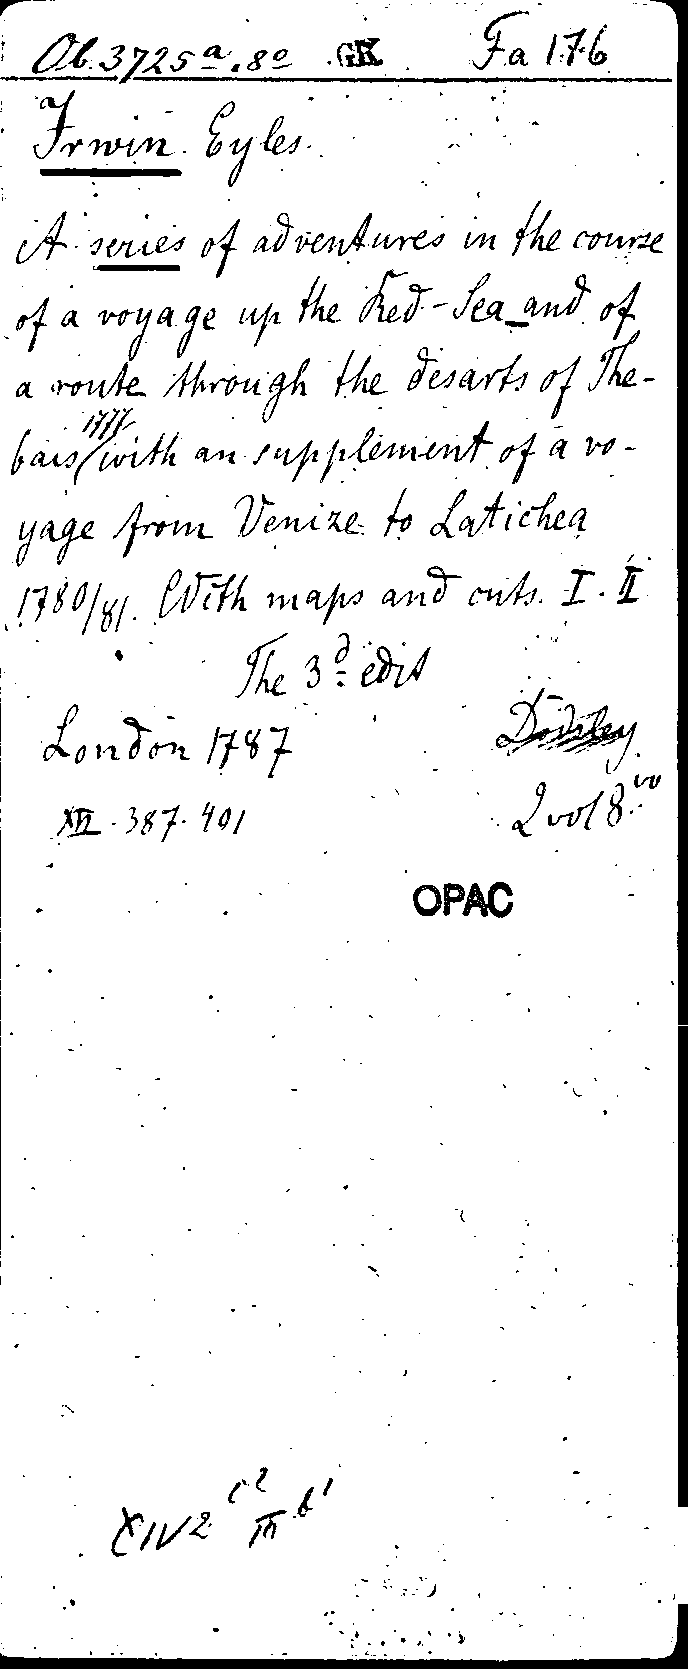 Ob 3725a.8o GK Fa 176
Irwin Eyles.
A series of adventures in the course
of a voyage up the Red-Sea and of
a route through the desarts of The-
bais 1777 with an supplement of a vo-
yage from Venize to Latichea
1780/81. With maps and cuts. I. II
The 3d edit
London 1787 Dodsley
XVI. 387. 401 2 vol 8vo
OPAC